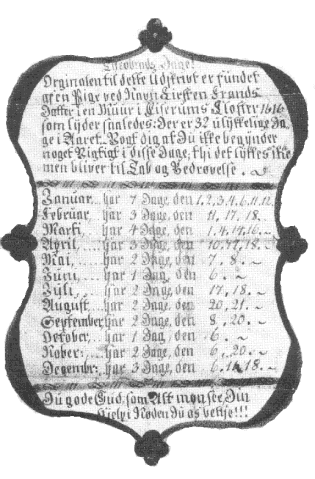 Tychobrahs Dage!
Orginalen til dette Udskrivt er fundet
af en Pige ved Navn Kirsten Frands
Datter i en Muur i Eiserums Closter 1616
som lyder saaledes: Der er 32 ulykkelige Da
ge i Aaret. Vogt dig at Du ikke begynder
noget Vigtigt i disse Dage, thi det lykkes ikke
men bliver til Tab og Bedrøvelse.
Januar, har 7 Dage, den 1, 2, 3, 4, 6, 11, 12.
Februar, har 3 Dage, den 11, 17, 18.
Marti, har 4 Dage, den 1, 4, 14, 16.
April, har 3 Dage, den 10, 17, 18.
Mai, har 2 Dage, den 7, 8.
Juni, har 1 Dag, den 6.
Juli, har 2 Dage, den 17, 18.
August, har 2 Dage, den 20, 21.
September har 2 Dage, den 8, 20.
October, har 1 Dag, den 6.
Nober, har 2 Dage, den 6, 20.
Decembr: har 3 Dage, den 6, 18.
Du gode Gud, som Alt mon see, Din
Hielp i Nøden Du os